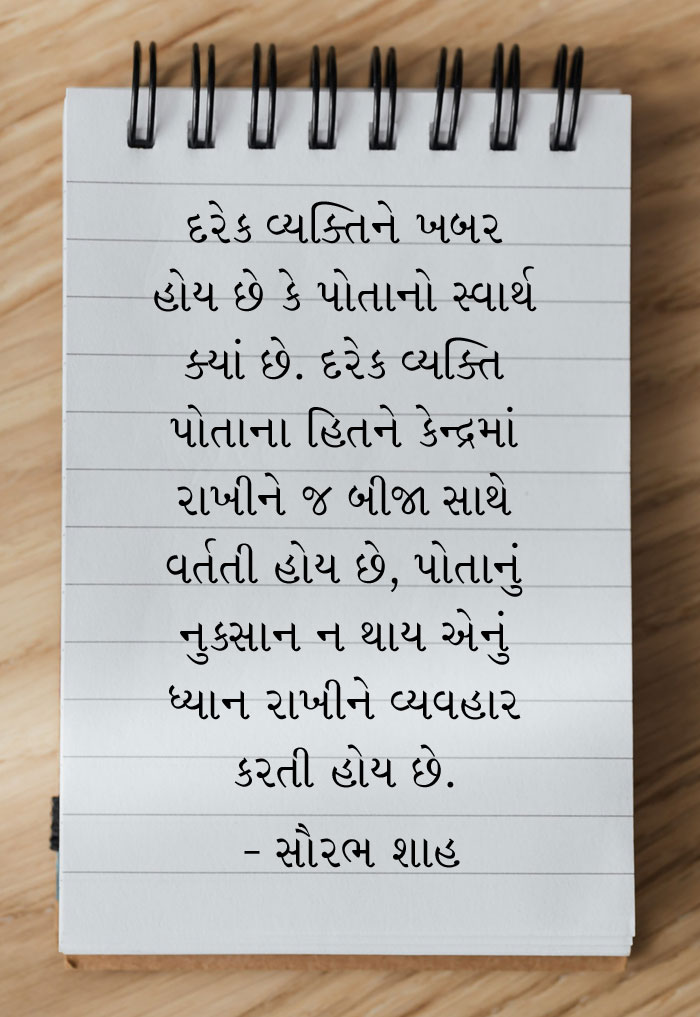 દરેક વ્યક્તિને ખબર
હોય છે કે પોતાનો સ્વાર્થ
ક્યાં છે. દરેક વ્યક્તિ
પોતાના હિતને કેન્દ્રમાં
રાખીને જ બીજા સાથે
વર્તતી હોય છે, પોતાનું
નુકસાન ન થાય એનું
ધ્યાન રાખીને વ્યવહાર
કરતી હોય છે.
- સૌરભ શાહ